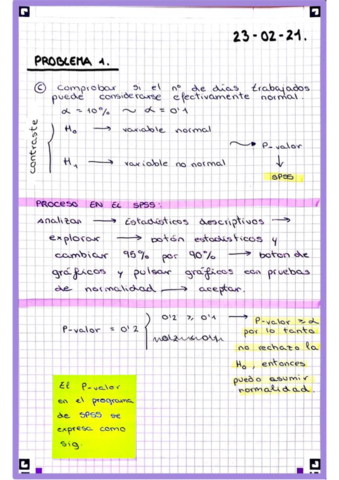 23-02-21.
PROBLEMA 1.
C) Comprobar si el nº de días trabajados
puede considerarse efectivamente normal.
α = 10% ~ α = 0'1
contraste
H₀ → variable normal
H₁ → variable no normal
P-valor
↓
SPSS
PROCESO EN EL SPSS:
Analizar → Estadísticos descriptivos →
explorar → botón estadísticos y
cambiar 95% por 90% → botón de
gráficos y pulsar gráficos con pruebas
de normalidad → aceptar.
P-valor = 0'2
0'2 ≥ 0'1
→ P-valor ≥ α
por lo tanto
no rechazo la
H₀, entonces
puedo asumir
normalidad.
El P-valor
en el programa
de SPSS se
expresa como
sig.